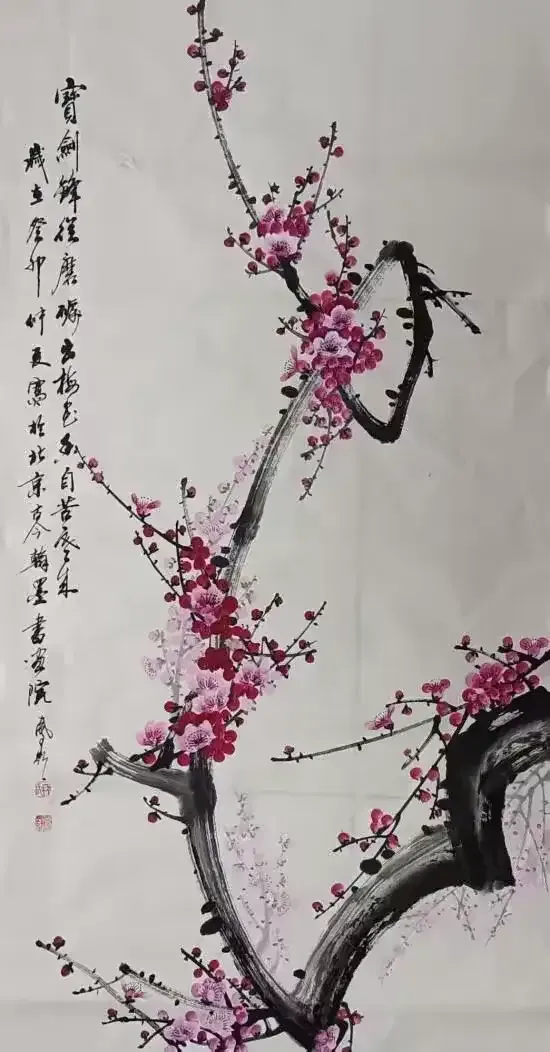 寶劍鋒從磨礪出梅花香自苦寒來
歲在癸卯仲夏寫於北京古今翰墨書画院